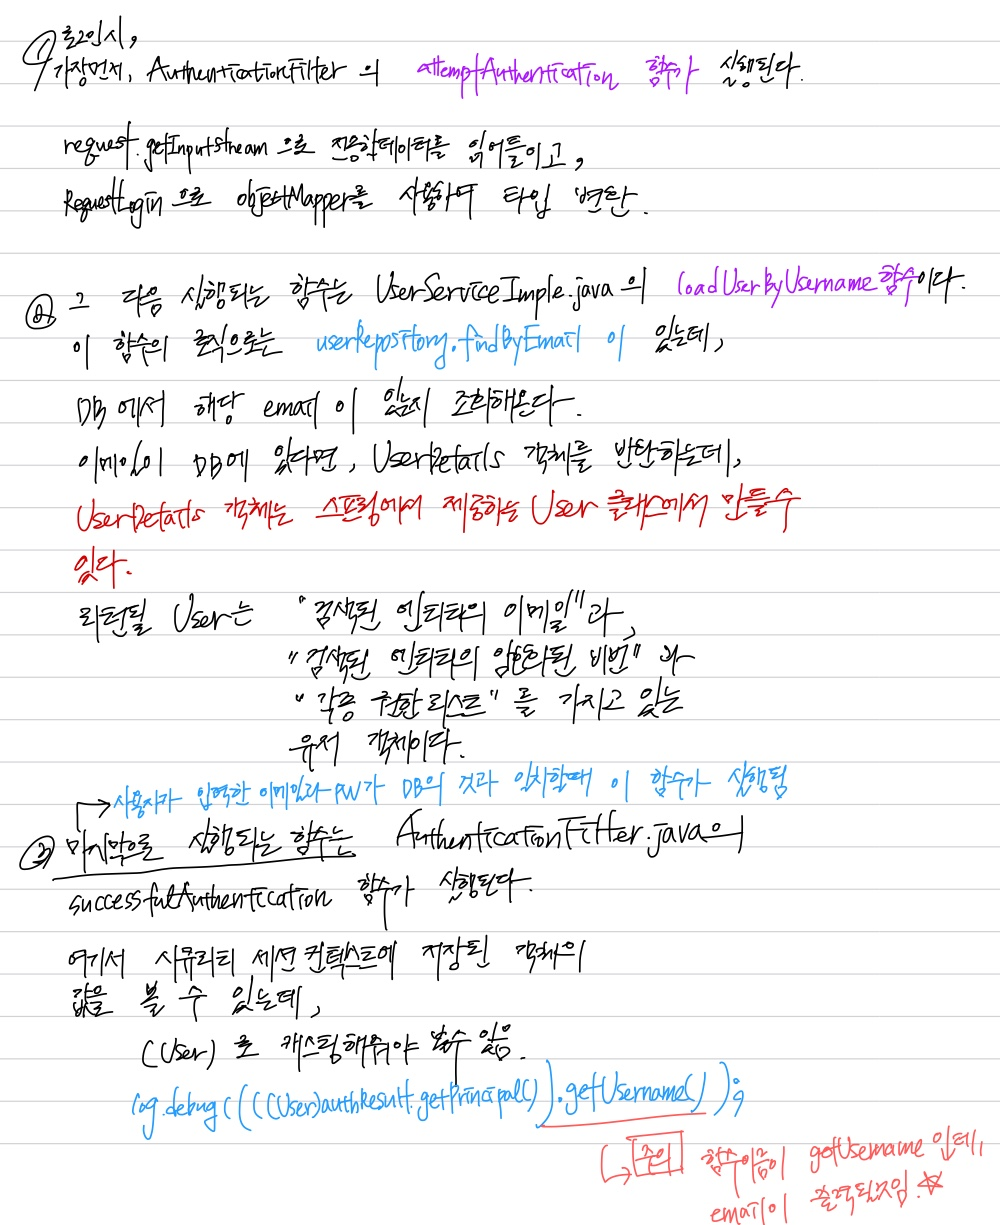 ① 로그인시,
가장먼저, AuthenticationFilter 의 attemptAuthentication 함수가 실행된다.
request.getInputStream 으로 전송한데이터를 읽어들이고,
RequestLogin 으로 objectMapper를 사용하여 타입 변환.
② 그 다음 실행되는 함수는 UserServiceImple.java의 loadUserByUsername 함수이다.
이 함수의 로직으로는 userRepository.findByEmail 이 있는데,
DB 에서 해당 email 이 있는지 조회해온다.
이메일이 DB에 있다면, UserDetails 객체를 반환하는데,
UserDetails 객체는 스프링에서 제공하는 User 클래스에서 만들수
있다.
리턴될 User는 "검색된 엔티티의 이메일"과,
"검색된 엔티티의 암호화된 비번" 과
"각종 권한 리스트" 를 가지고 있는
유저 객체이다.
→ 사용자가 입력한 이메일과 PW가 DB의 것과 일치할때 이 함수가 실행됨
③ 마지막으로 실행되는 함수는 AuthenticationFilter.java의
successfulAuthentication 함수가 실행된다.
여기서 시큐리티 세션 컨텍스트에 저장된 객체의
값을 볼 수 있는데,
(User) 로 캐스팅해줘야 볼수 있음.
log.debug((((User)authResult.getPrincipal()).getUsername());
↳ 주의 함수이름이 getUsername 인데,
email이 출력될것임. ☆